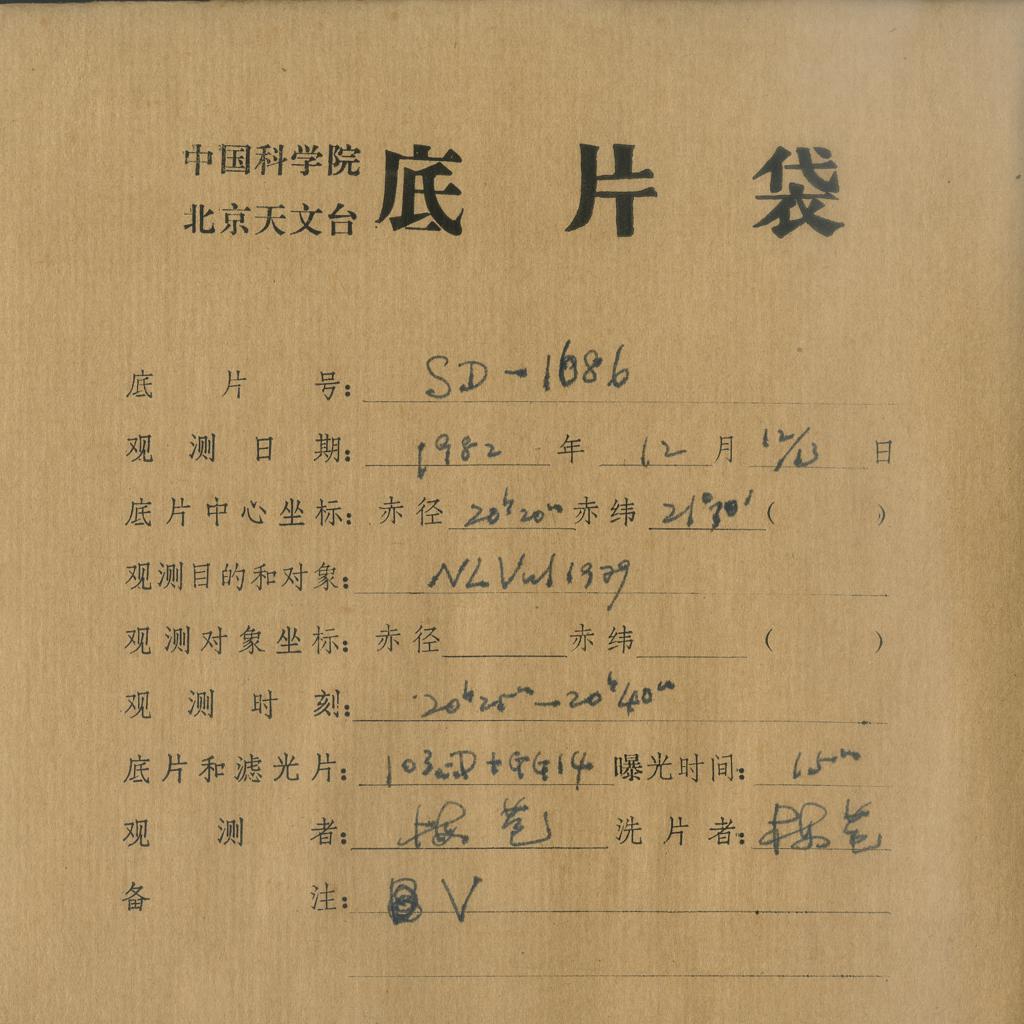 中国科学院
北京天文台
底片袋
底片号: SD-1686
观测日期: 1982年12月12/13日
底片中心坐标: 赤径 20h20m 赤纬 21°30′ ( )
观测目的和对象: NLVul 1979
观测对象坐标: 赤径 赤纬 ( )
观测时刻: 20h25m-20h40m
底片和滤光片: 103aD+GG14 曝光时间: 15m
观测者: 梅苞 洗片者: 梅苞
备注: V